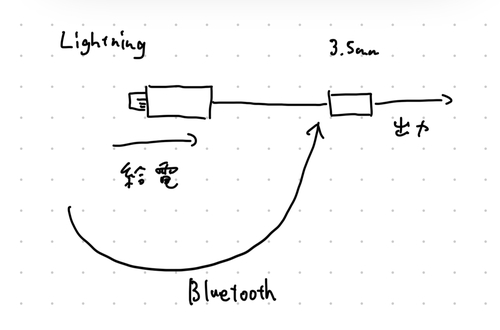 Lightning
3.5mm
出力
給電
Bluetooth